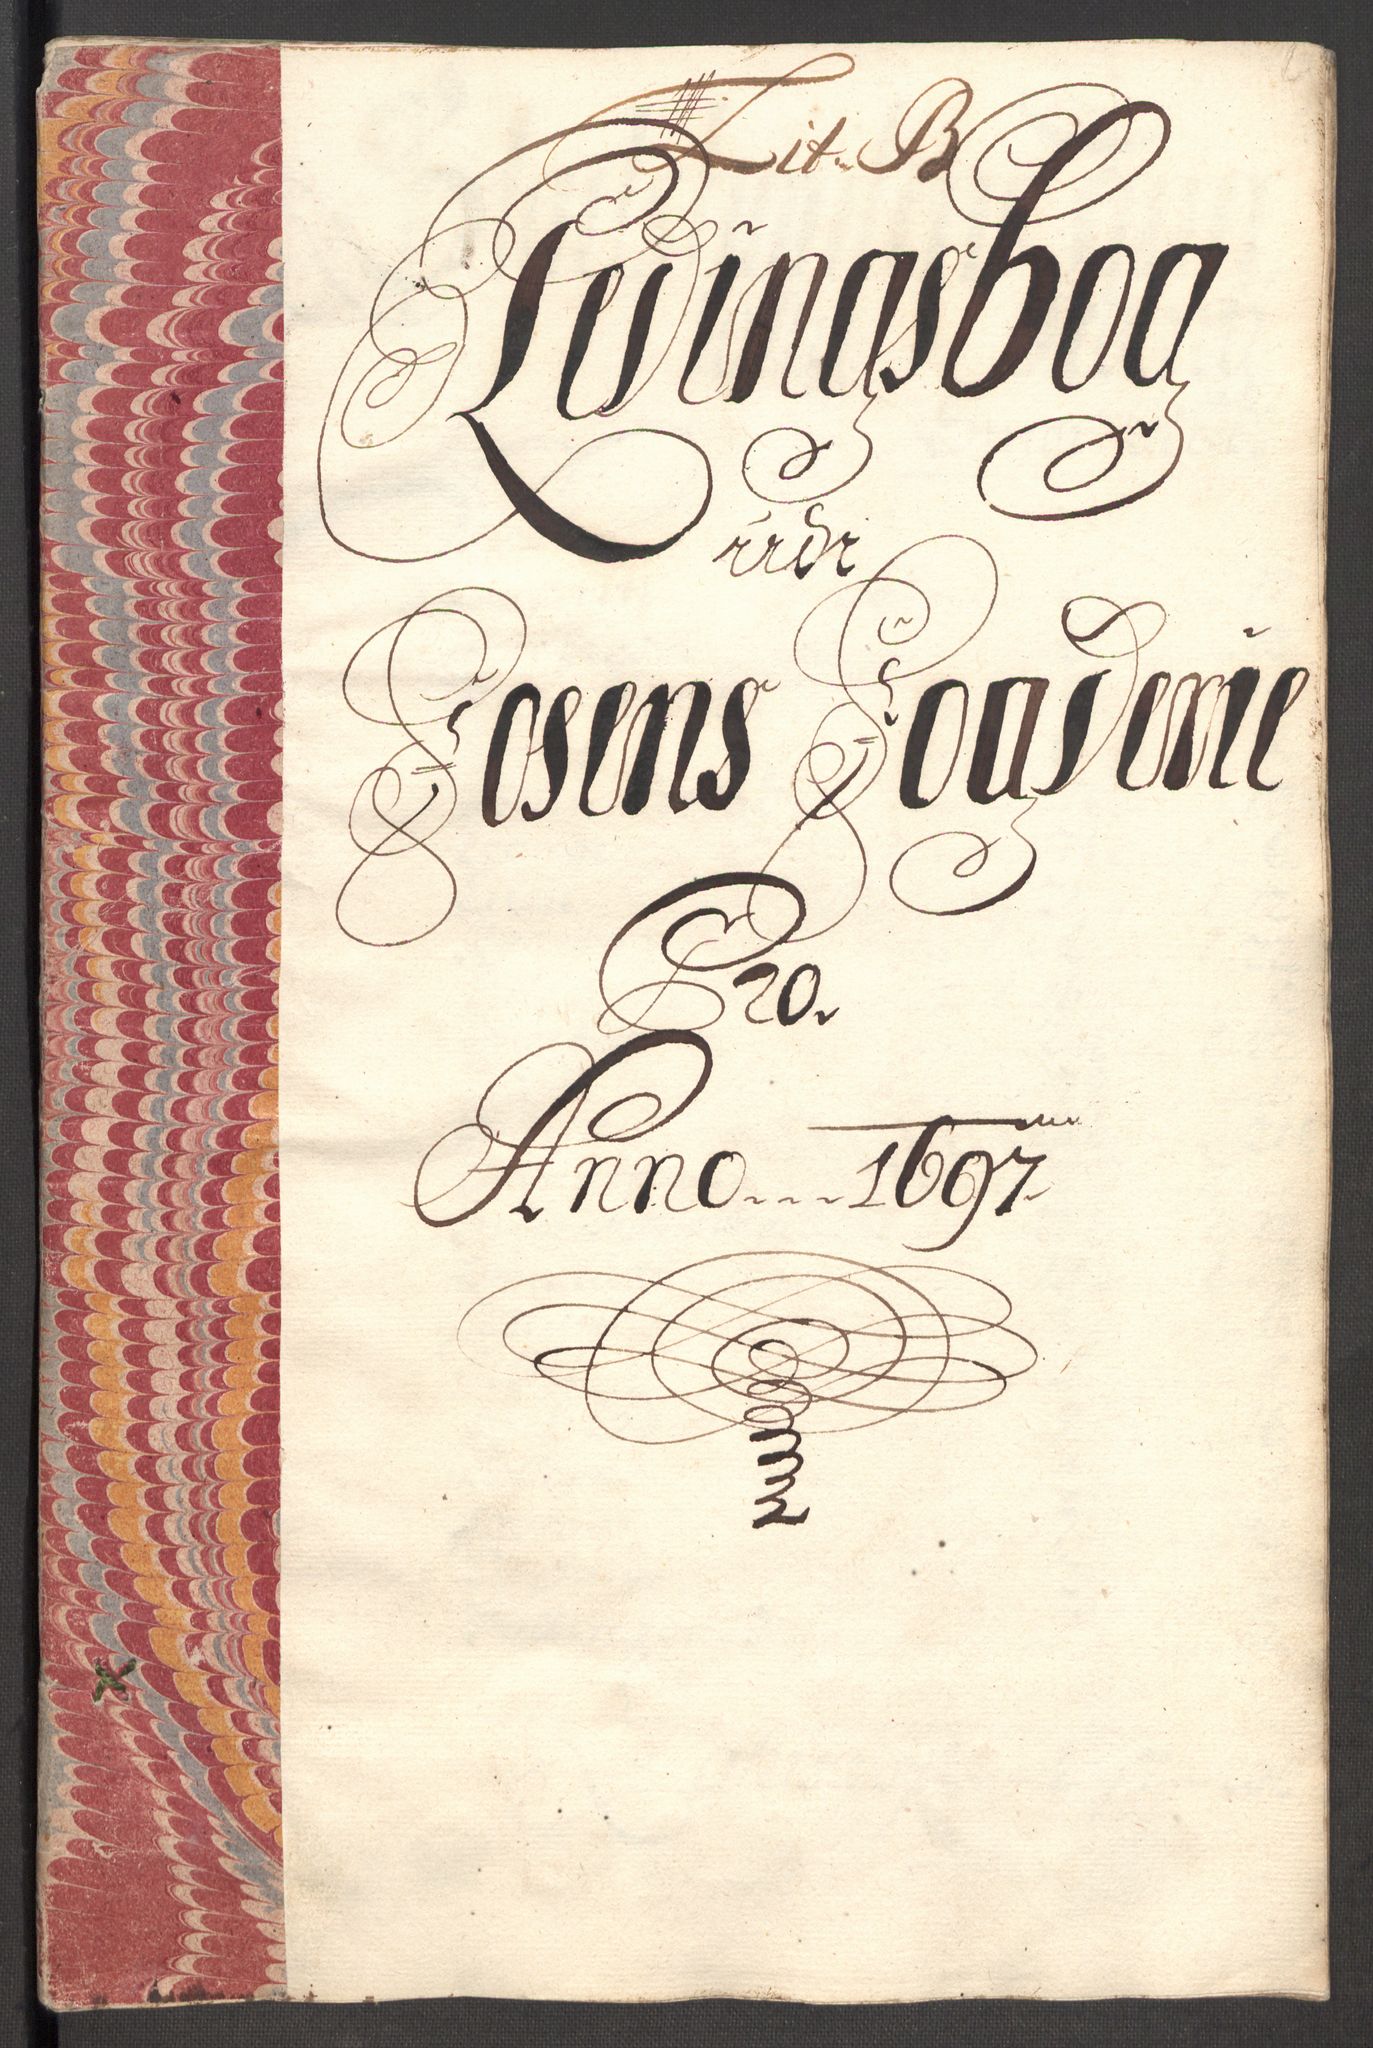 Lit. B
Ledingsbog
udi
Fosens Fogderie
Pro.
Anno - - - 1697